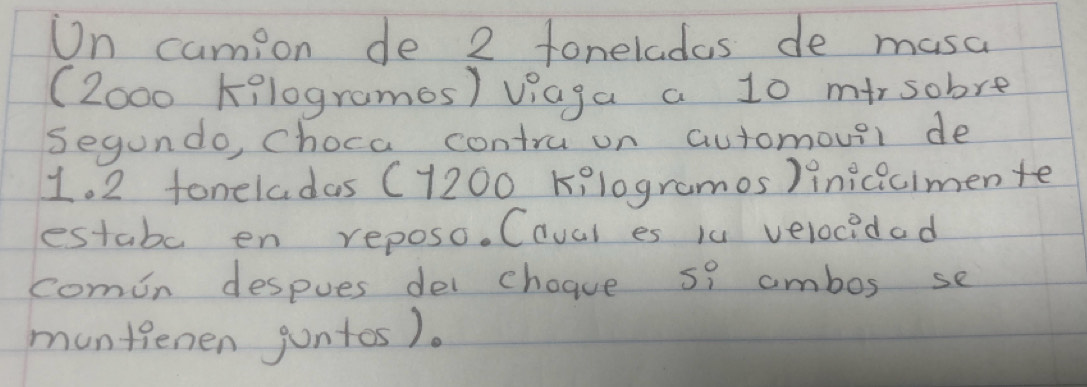 Un camion de 2 toneladas de masa
(2000 Kilogramos) viaja a 10 mtr sobre
segundo, choca contra un automovil de
1.2 toneladas (1200 Kilogramos) inicialmente
estaba en reposo. (Cual es la velocidad
común despues del choque si ambos se
mantienen juntos).